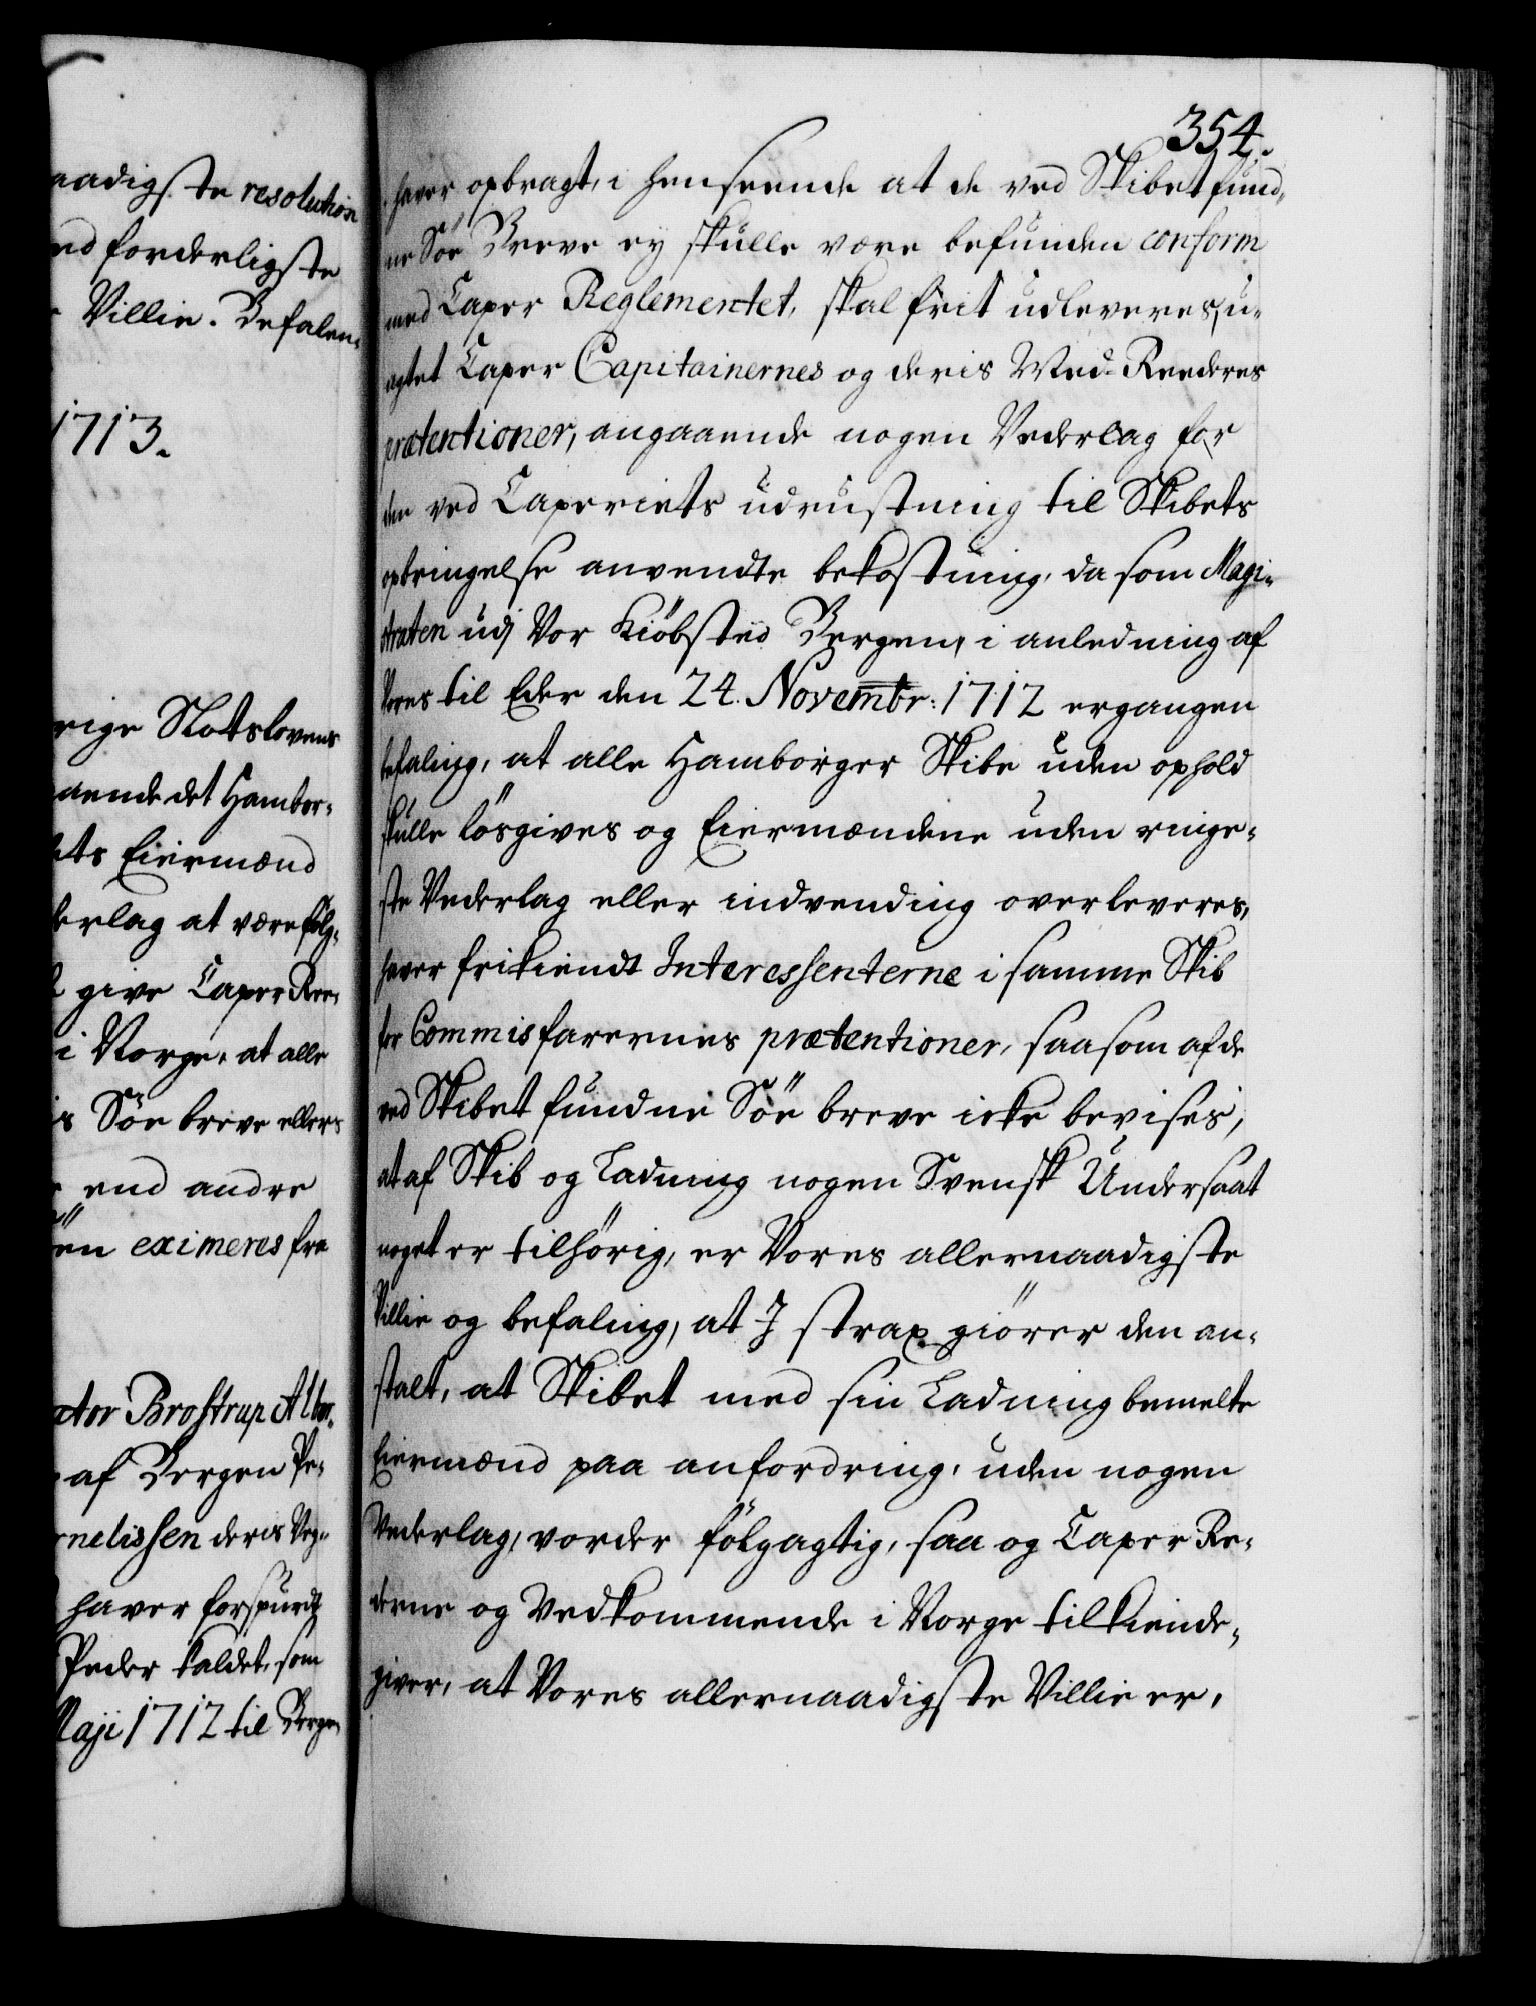 aadigste resolution
ed forderligste
Villie. Befalen-
1713.
rige Slotslovens
aaende det Hambor-
ets Eiermænd
derlag at være følg-
give Caper Ree-
i Norge, at alle
is Söe breve ellers
end andre
en eximeres fra
ator Brostrup Alber-
af Bergen Pe-
rnelissen deris Veg-
haver forspurdt
Peder kaldet, som
Maji 1712 til Bergen
354.
haver opbragt, i henseende at de ved Skibet fund-
ne Söe Breve ey skulle være befunden conform
med Caper Reglementet, skal frit udleveres, u-
agtet Caper Capitainernes og deris Med-Reederes
prætentioner, angaaende nogen Vederlag for
den ved Caperiets udrustning til Skibets
opbringelse anvendte bekostning, da som Magi-
straten udj Vor Kiöbsted Bergen, i anledning af
Vores til Eder den 24. Novembr: 1712 ergangen
befaling, at alle Hamborger Skibe uden ophold
skulle lösgives og Eiermændene uden ringe-
ste Vederlag eller indvending overleveres,
haver frikiendt Interessenterne i samme Skib
for Commisfarernes prætentioner, saasom af de
ved Skibet fundne Söe breve icke bevises,
at af Skib og Ladning nogen Svensk Undersaat
noget er tilhörig, er Vores allernaadigste
Villie og befaling, at J strax giörer den an-
stalt, at Skibet med sin Ladning bemelte
Eiermænd paa anfordring, uden nogen
Vederlag, vorder fölgagtig, saa og Caper Re-
derne og Vedkommende i Norge tilkiende-
giver, at Vores allernaadigste Villie er,